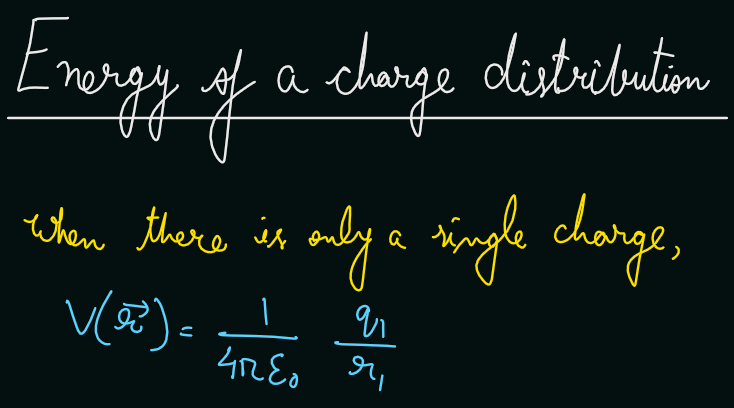 Energy of a charge distribution
When there is only a single charge,
V(r⃗) = 1/4πε₀ q₁/r₁